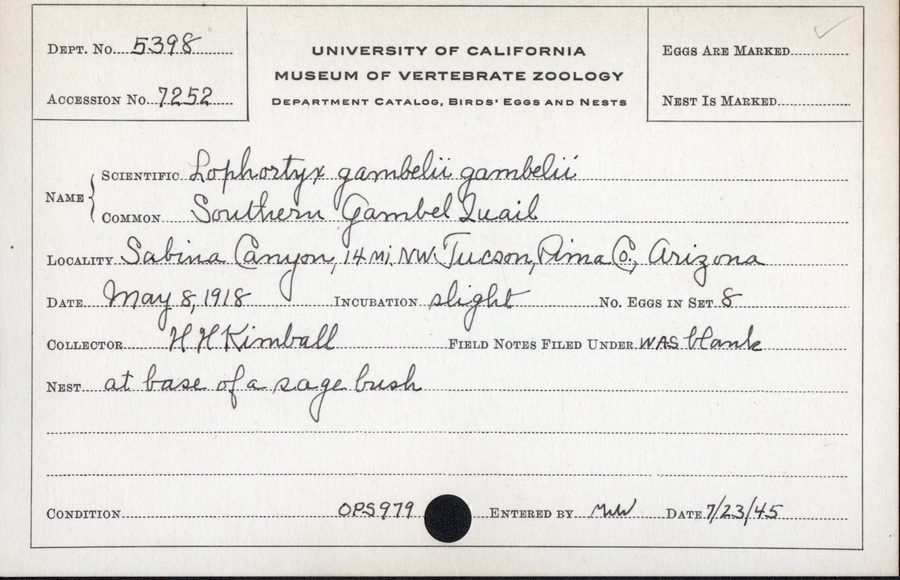 Dept. No. 5398
UNIVERSITY OF CALIFORNIA
Eggs Are Marked ✓
MUSEUM OF VERTEBRATE ZOOLOGY
Accession No. 7252
Department Catalog, Birds' Eggs and Nests
Nest Is Marked
Name
Scientific Lophortyx gambelii gambelii
Common Southern Gambel Quail
Locality Sabina Canyon, 14 mi. NW. Tucson, Pima Co., Arizona
Date May 8, 1918 Incubation slight No. Eggs in Set 8
Collector H H Kimball Field Notes Filed Under WAS blank
Nest at base of a sage bush
Condition OPS979 Entered by Date 7/23/45